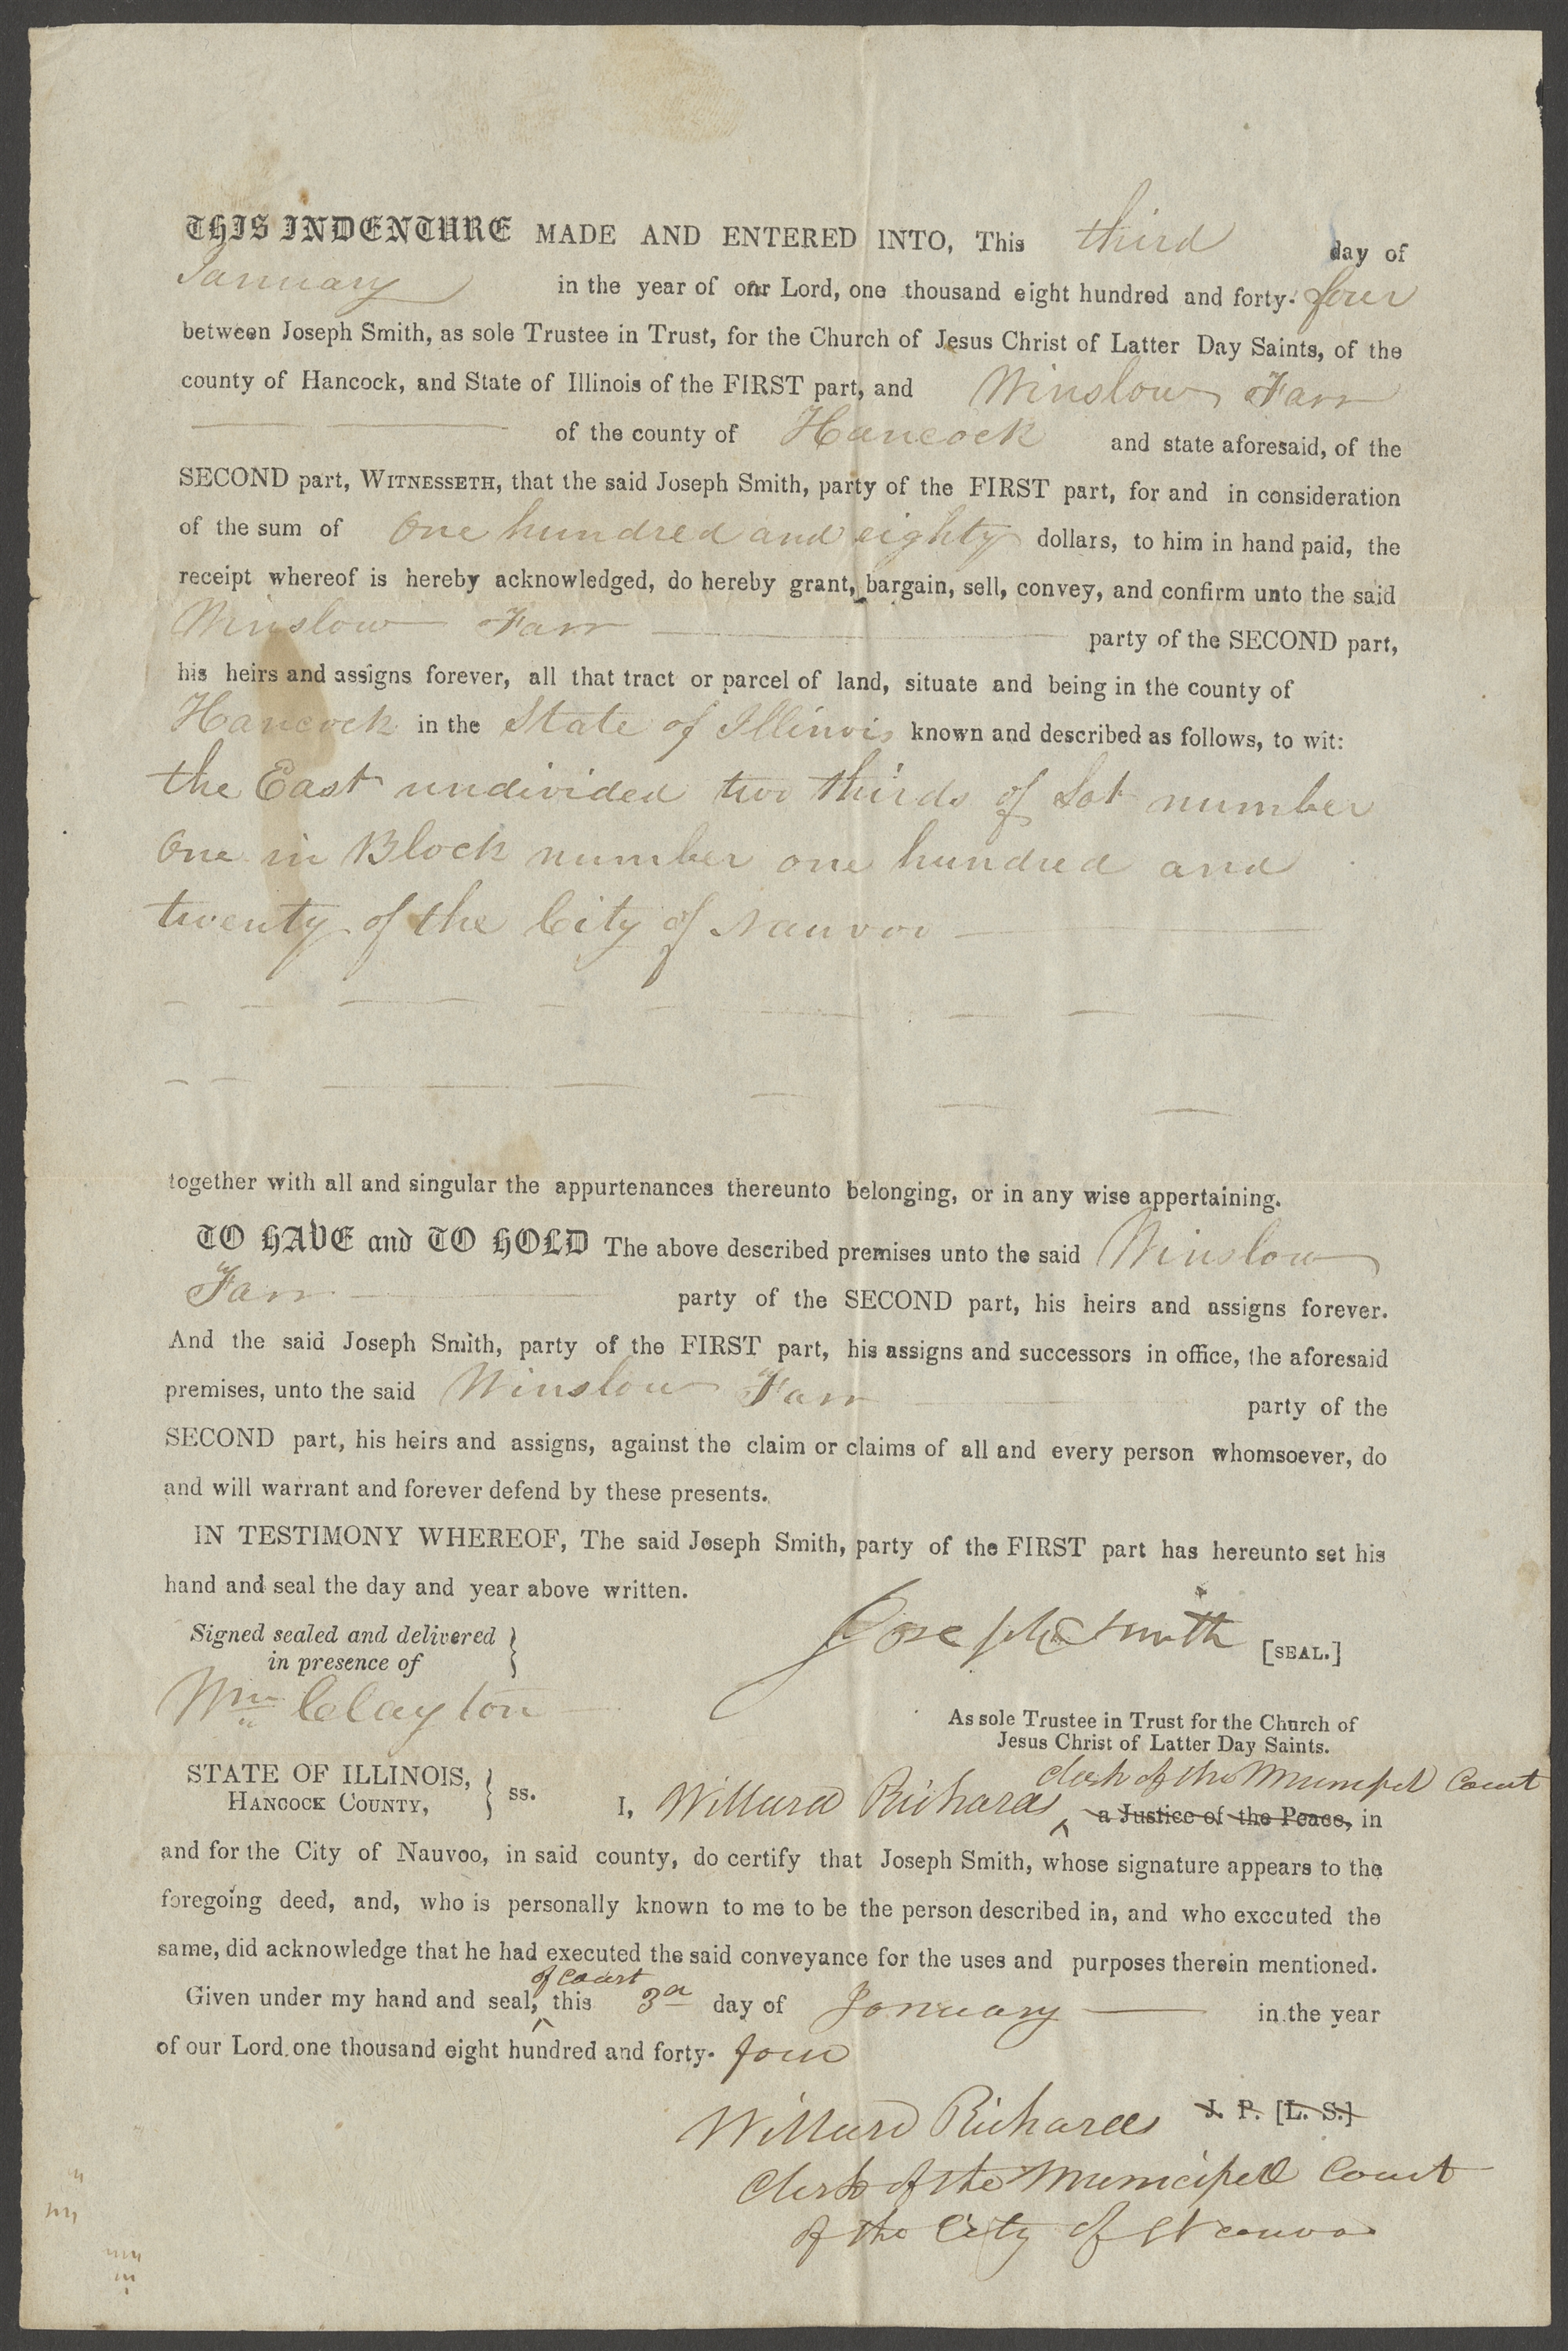 THIS INDENTURE MADE AND ENTERED INTO, This third day of
January in the year of our Lord, one thousand eight hundred and forty-four
between Joseph Smith, as sole Trustee in Trust, for the Church of Jesus Christ of Latter Day Saints, of the
county of Hancock, and State of Illinois of the FIRST part, and Winslow Farr
of the county of Hancock and state aforesaid, of the
SECOND part, WITNESSETH, that the said Joseph Smith, party of the FIRST part, for and in consideration
of the sum of One hundred and eighty dollars, to him in hand paid, the
receipt whereof is hereby acknowledged, do hereby grant, bargain, sell, convey, and confirm unto the said
Winslow Farr party of the SECOND part,
his heirs and assigns forever, all that tract or parcel of land, situate and being in the county of
Hancock in the State of Illinois known and described as follows, to wit:
the East undivided two thirds of Lot number
One in Block number one hundred and
twenty of the City of Nauvoo
together with all and singular the appurtenances thereunto belonging, or in any wise appertaining.
TO HAVE and TO HOLD The above described premises unto the said Winslow
Farr party of the SECOND part, his heirs and assigns forever.
And the said Joseph Smith, party of the FIRST part, his assigns and successors in office, the aforesaid
premises, unto the said Winslow Farr party of the
SECOND part, his heirs and assigns, against the claim or claims of all and every person whomsoever, do
and will warrant and forever defend by these presents.
IN TESTIMONY WHEREOF, The said Joseph Smith, party of the FIRST part has hereunto set his
hand and seal the day and year above written.
Signed sealed and delivered
in presence of
Joseph Smith [SEAL.]
Wm Clayton
As sole Trustee in Trust for the Church of
Jesus Christ of Latter Day Saints.
clerk of the Municipal Court
STATE OF ILLINOIS,
HANCOCK COUNTY, ss.
I, Willard Richards ^ a Justice of the Peace, in
and for the City of Nauvoo, in said county, do certify that Joseph Smith, whose signature appears to the
foregoing deed, and, who is personally known to me to be the person described in, and who exccuted the
same, did acknowledge that he had executed the said conveyance for the uses and purposes therein mentioned.
of court
Given under my hand and seal, ^ this 3d day of January in the year
of our Lord one thousand eight hundred and forty-four
Willard Richards J. P. [L. S.]
Clerk of the Municipal Court
of the City of Nauvoo